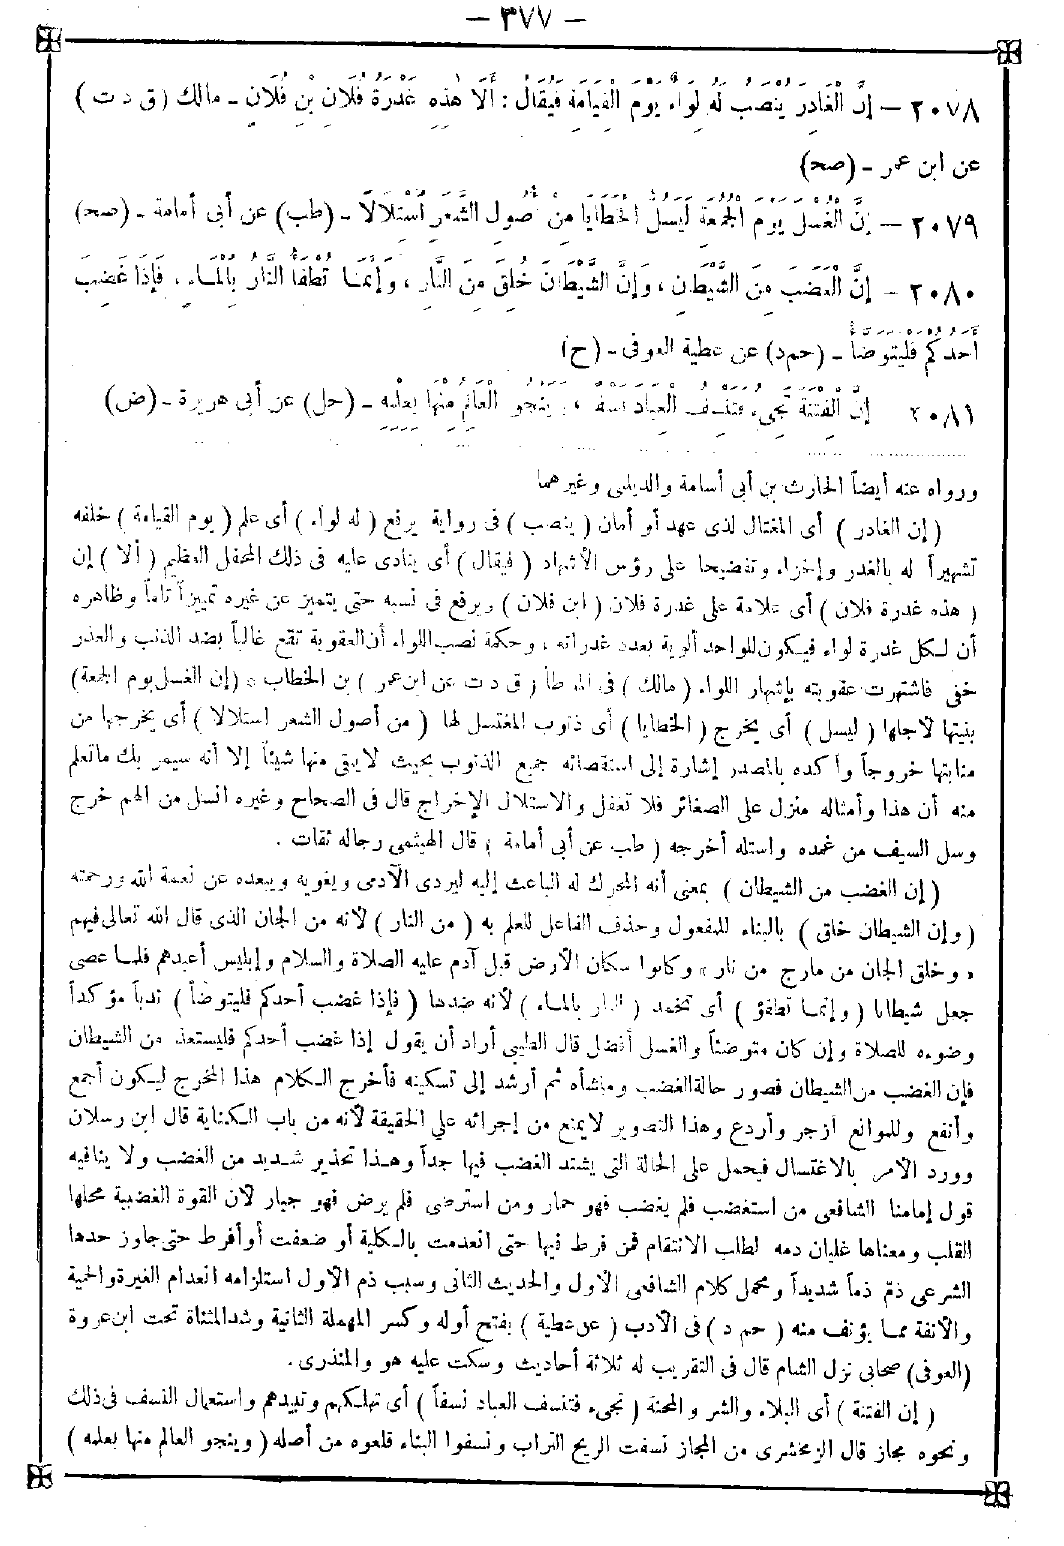 - ٣٧٧ -
٢٠٧٨ - إِنَّ الْغَادِرَ يُنْصَبُ لَهُ لِوَاءٌ يَوْمَ الْقِيَامَةِ فَيُقَالُ : أَلَا هٰذِهِ غَدْرَةُ فُلَانِ بْنِ فُلَانٍ - مالك ( ق د ت )
عن ابن عمر - (صح)
٢٠٧٩ - إِنَّ الْغُسْلَ يَوْمَ الْجُمُعَةِ لَيَسُلُّ الْخَطَايَا مِنْ أُصُولِ الشَّعَرِ اسْتِلَالًا - (طب) عن أبى أمامة - (صح)
٢٠٨٠ - إِنَّ الْغَضَبَ مِنَ الشَّيْطَانِ ، وَإِنَّ الشَّيْطَانَ خُلِقَ مِنَ النَّارِ ، وَإِنَّمَا تُطْفَأُ النَّارُ بِالْمَاءِ ، فَإِذَا غَضِبَ
أَحَدُكُمْ فَلْيَتَوَضَّأْ - (حم د) عن عطية العوفى - (ح)
٢٠٨١ إِنَّ الْفِتْنَةَ تَجِىءُ فَتَنْسِفُ الْعِبَادَ نَسْفًا ، وَيَنْجُو الْعَالِمُ مِنْهَا بِعِلْمِهِ - (حل) عن أبى هريرة - (ض)
ورواه عنه أيضاً الحارث بن أبى أسامة والديلمى وغيرهما
( إن الغادر ) أى المغتال لذى عهد أو أمان ( ينصب ) فى رواية يرفع ( له لواء ) أى علم ( يوم القيامة ) خلفه
تشهيراً له بالغدر وإخزاء وتفضيحا على رؤس الأشهاد ( فيقال ) أى ينادى عليه فى ذلك المحفل العظيم ( ألا ) إن
( هذه غدرة فلان ) أى علامة على غدرة فلان ( ابن فلان ) ويرفع فى نسبه حتى يتميز عن غيره تمييزاً تاماً وظاهره
أن لكل غدرة لواء فيكون للواحد ألوية بعدد غدراته ، وحكمة نصب اللواء أن العقوبة تقع غالباً بضد الذنب والغدر
خفى فاشتهرت عقوبته بإشهار اللواء ( مالك ) فى الموطأ ( ق د ت عن ابن عمر ) بن الخطاب ه (إن الغسل يوم الجمعة)
بنيتها لأجلها ( ليسل ) أى يخرج ( الخطايا ) أى ذنوب المغتسل لها ( من أصول الشعر استلالا ) أى يخرجها من
منابتها خروجاً وأكده بالمصدر إشارة إلى استقصائه جميع الذنوب بحيث لا يبقى منها شيئاً إلا أنه سيمر بك ما تعلم
منه أن هذا وأمثاله منزل على الصغائر فلا تغفل والاستلال الإخراج قال فى الصحاح وغيره انسل من الهم خرج
وسل السيف من غمده واستله أخرجه ( طب عن أبى أمامة ) قال الهيثمى رجاله ثقات .
( إن الغضب من الشيطان ) بمعنى أنه المحرك له الباعث إليه ليردى الآدمى ويغويه ويبعده عن نعمة الله ورحمته
( وإن الشيطان خلق ) بالبناء للمفعول وحذف الفاعل للعلم به ( من النار ) لأنه من الجان الذى قال الله تعالى فيهم
« وخلق الجان من مارج من نار » وكانوا سكان الأرض قبل آدم عليه الصلاة والسلام وإبليس أعبدهم فلما عصى
جعل شيطانا ( وإنما تطفؤ ) أى تخمد ( النار بالماء ) لأنه ضدها ( فإذا غضب أحدكم فليتوضأ ) ندباً مؤكداً
وضوءه للصلاة وإن كان متوضئاً والغسل أفضل قال الطيبى أراد أن يقول إذا غضب أحدكم فليستعذ من الشيطان
فإن الغضب من الشيطان فصور حالة الغضب ومنشأه ثم أرشد إلى تسكينه فأخرج الكلام هذا المخرج ليكون أجمع
وأنفع وللموانع أزجر وأردع وهذا التصوير لا يمنع من إجرائه على الحقيقة لأنه من باب الكناية قال ابن رسلان
وورد الأمر بالاغتسال فيحمل على الحالة التى يشتد الغضب فيها جداً وهذا تحذير شديد من الغضب ولا ينافيه
قول إمامنا الشافعى من استغضب فلم يغضب فهو حمار ومن استرضى فلم يرض فهو جبار لأن القوة الغضبية محلها
القلب ومعناها غليان دمه لطلب الانتقام فمن فرط فيها حتى انعدمت بالكلية أو ضعفت أو أفرط حتى جاوز حدها
الشرعى ذمّ ذماً شديداً ومحمل كلام الشافعى الأول والحديث الثانى وسبب ذم الأول استلزامه انعدام الغيرة والحمية
والأنفة مما يؤنف منه ( حم د ) فى الأدب ( عن عطية ) بفتح أوله وكسر المهملة الثانية وشد المثناة تحت ابن عروة
(العوفى) صحابى نزل الشام قال فى التقريب له ثلاثة أحاديث وسكت عليه هو والمنذرى .
( إن الفتنة ) أى البلاء والشر والمحنة ( تجىء فتنسف العباد نسفاً ) أى تهلكهم وتبيدهم واستعمال النسف فى ذلك
ونحوه مجاز قال الزمخشرى من المجاز نسفت الريح التراب ونسفوا البناء قلعوه من أصله ( وينجو العالم منها بعلمه )